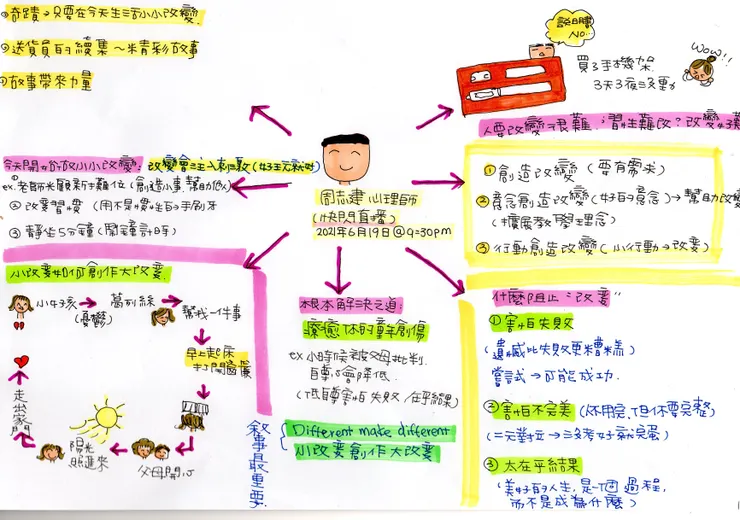 奇蹟→只要在今天生活小小改變.
送貨員的續集～精彩故事
故事帶來力量
說明書
NO...
買了手機架
3天3夜沒動
WOW!!
人要改變=很難,習性難改?改變好難
① 創造改變 (要有需求)
② 意念創造改變(好的意念)→幫助改變
(擴展教學理念)
③ 行動創造改變(小行動→改變)
周志建心理師
(快閃直播)
2021年6月19日@9:30pm
今天開始做小小改變:
② 改變習慣 (用不慣性的手刷牙
③ 靜坐5分鐘(鬧鐘計時)
小改變如何創作大改變.
小女孩
(憂鬱)
葛列絲
幫我一件事
早上起床
打開窗簾
父母開心
陽光
照進來
走出家門
敘事最重要
根本解決之道:
療癒你的童年創傷
ex小時候被父母批判.
自尊心會降低.
(低自尊害怕失敗/在乎結果)
Different make different
小改變創作大改變
什麼阻止"改變"
① 害怕失敗
(遺憾比失敗更糟糕)
嘗試→可能成功.
② 害怕不完美
(二元對立→沒考好就完蛋)
③ 太在乎結果
(美好的人生,是一個過程,
而不是成為什麼)